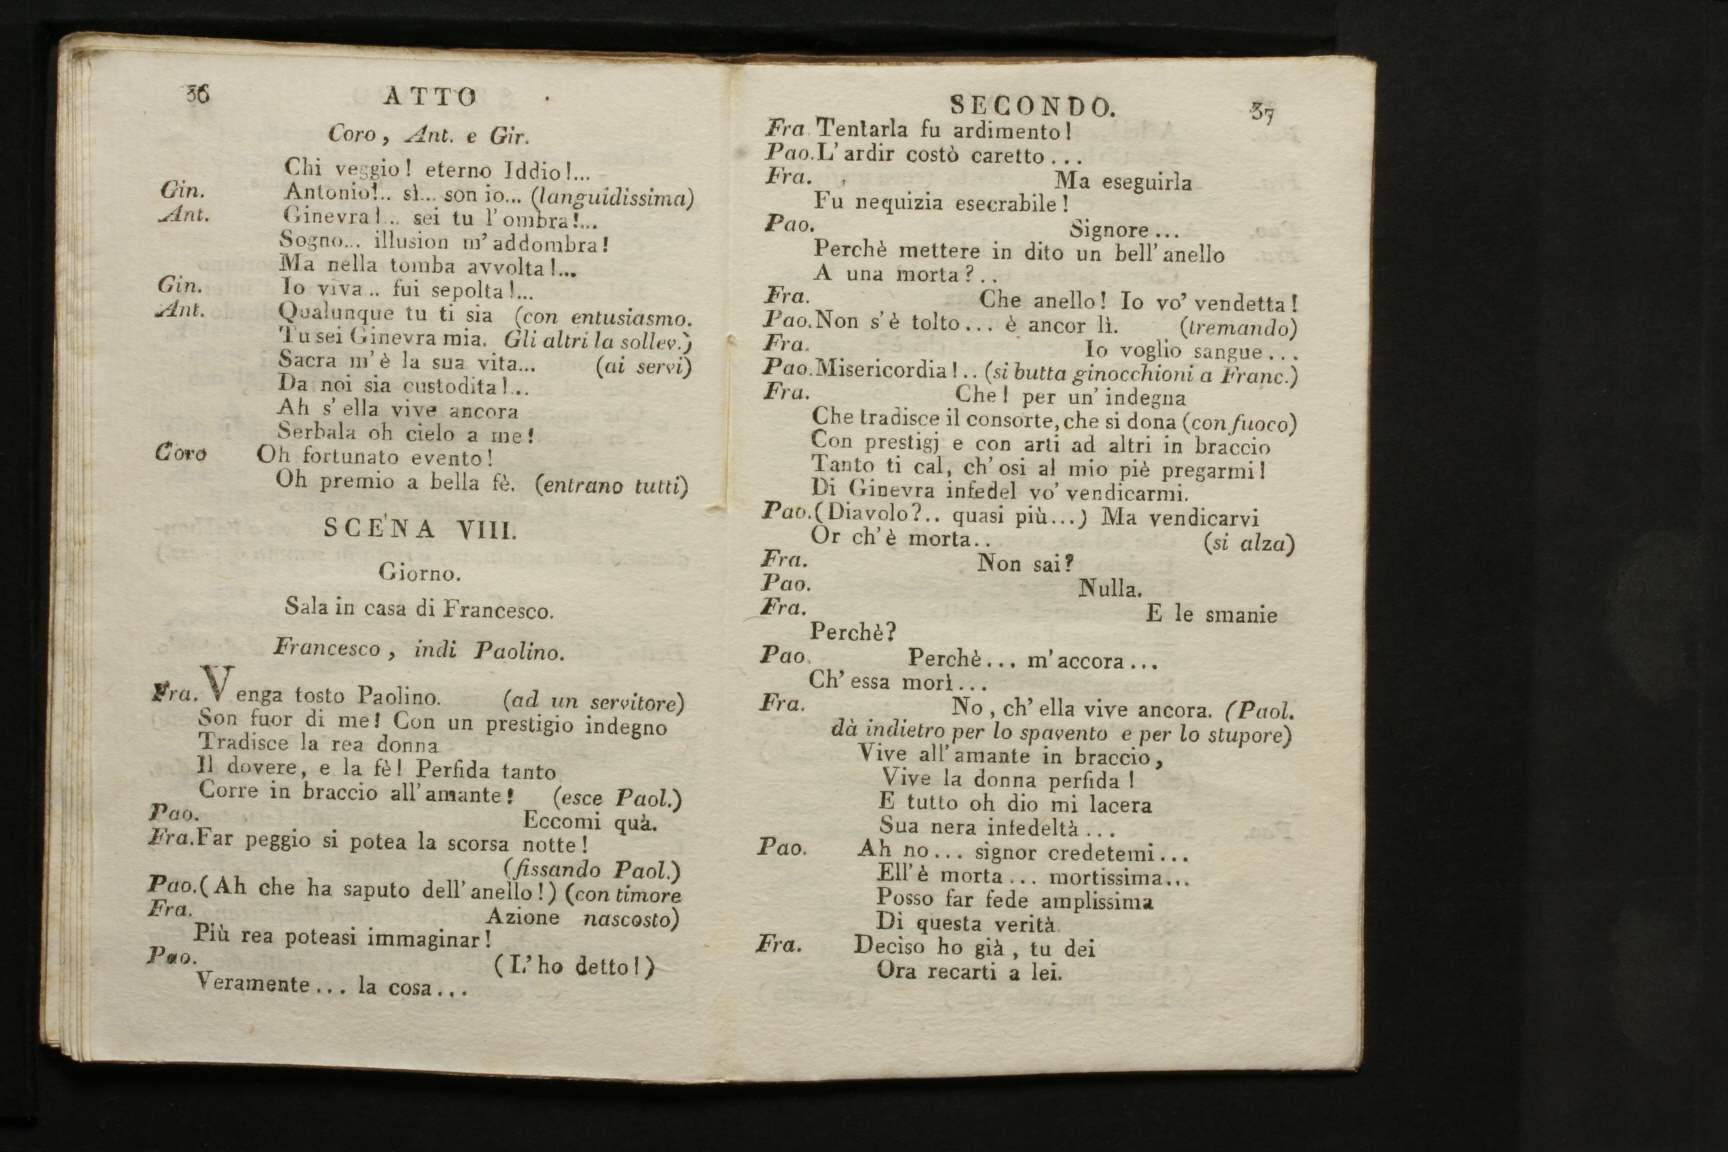 36
ATTO
Coro, Ant. e Gir.
Chi veggio! eterno Iddio!...
Gin. Antonio!.. sì... son io... (languidissima)
Ant. Ginevra!... sei tu l'ombra!...
Sogno... illusion m'addombra!
Ma nella tomba avvolta!...
Gin. Io viva.. fui sepolta!...
Ant. Qualunque tu ti sia (con entusiasmo.
Tu sei Ginevra mia. Gli altri la sollev.)
Sacra m'è la sua vita... (ai servi)
Da noi sia custodita!...
Ah s'ella vive ancora
Serbala oh cielo a me!
Coro Oh fortunato evento!
Oh premio a bella fè. (entrano tutti)
SCENA VIII.
Giorno.
Sala in casa di Francesco.
Francesco, indi Paolino.
Fra. Venga tosto Paolino. (ad un servitore)
Son fuor di me! Con un prestigio indegno
Tradisce la rea donna
Il dovere, e la fè! Perfida tanto
Corre in braccio all'amante! (esce Paol.)
Pao. Eccomi quà.
Fra. Far peggio si potea la scorsa notte!
(fissando Paol.)
Pao. (Ah che ha saputo dell'anello!) (con timore
Fra. Azione nascosto)
Più rea poteasi immaginar!
Pao. (L'ho detto!)
Veramente... la cosa...
SECONDO.
37
Fra Tentarla fu ardimento!
Pao. L'ardir costò caretto...
Fra. Ma eseguirla
Fu nequizia esecrabile!
Pao. Signore...
Perchè mettere in dito un bell'anello
A una morta?..
Fra. Che anello! Io vo' vendetta!
Pao. Non s'è tolto... è ancor lì. (tremando)
Fra. Io voglio sangue...
Pao. Misericordia!.. (si butta ginocchioni a Franc.)
Fra. Che! per un' indegna
Che tradisce il consorte, che si dona (con fuoco)
Con prestigj e con arti ad altri in braccio
Tanto ti cal, ch'osi al mio piè pregarmi!
Di Ginevra infedel vo' vendicarmi.
Pao. (Diavolo?.. quasi più...) Ma vendicarvi
Or ch'è morta.. (si alza)
Fra. Non sai?
Pao. Nulla.
Fra. E le smanie
Perchè?
Pao. Perchè... m'accora...
Ch'essa morì...
Fra. No, ch'ella vive ancora. (Paol.
dà indietro per lo spavento e per lo stupore)
Vive all'amante in braccio,
Vive la donna perfida!
E tutto oh dio mi lacera
Sua nera infedeltà...
Pao. Ah no... signor credetemi...
Ell'è morta... mortissima...
Posso far fede amplissima
Di questa verità.
Fra. Deciso ho già, tu dei
Ora recarti a lei.